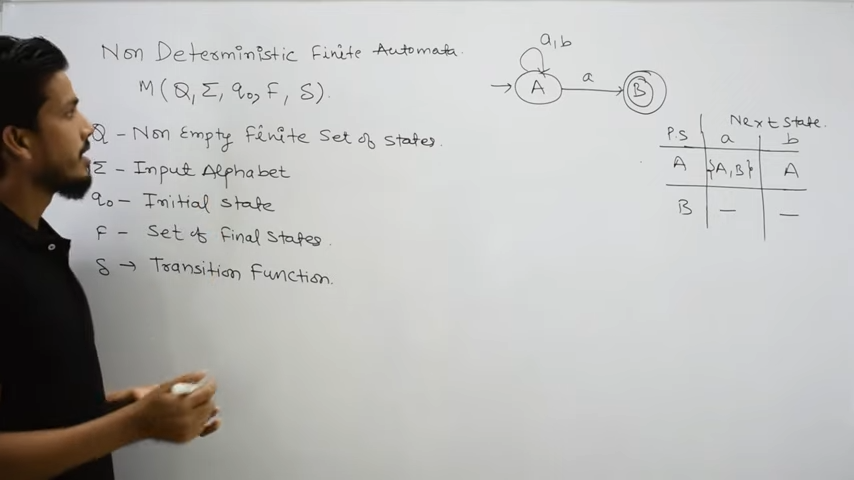 Non Deterministic Finite Automata.
M(Q, Σ, q0, F, δ).
Q - Non Empty Finite Set of States.
Σ - Input Alphabet
q0 - Initial State
F - Set of Final States.
δ → Transition Function.
a,b
A a B
Next State.
P.S a b
A {A,B} A
B — —